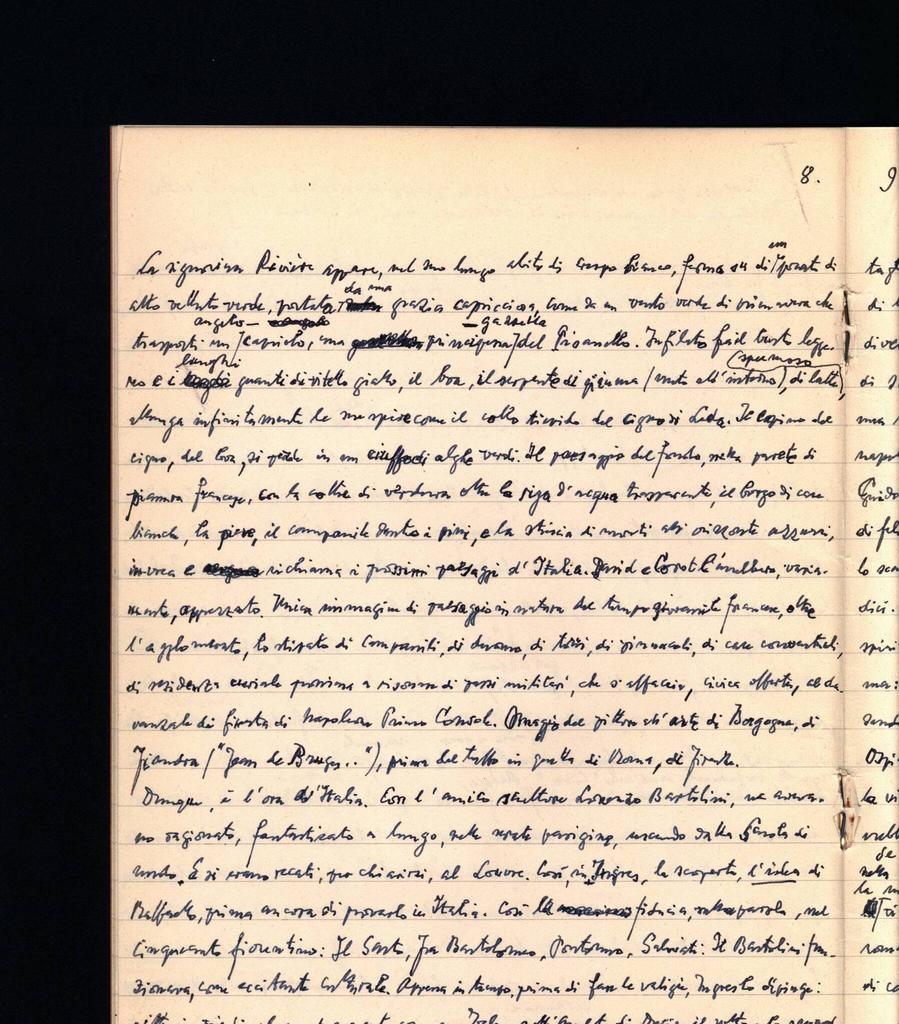 8.
9
La signorina Rivière appare, nel suo lungo abito di crespo bianco, ferma su di un
alto velluto verde, portata da una grazia capricciosa, come da un vento verde di primavera che
angelo — — gazzella
trasporti un capriolo, una principessa del Pisanello. Infilato già il busto legge-
lunghi (spumoso
ro e i guanti di vitello giallo, il boa, il serpente di piuma (vinto all'inferno), di latte,
allunga infinitamente le sue spire come il collo tiepido del cigno di Leda. Il capino del
cigno, del boa, si perde in un ciuffo di alghe verdi. Il paesaggio del fondo, nella parete di
pianura francese, con la coltre di verdura oltre la riga d'acqua trasparente, il borgo di case
bianche, la pieve, il campanile dentro i pini, e la striscia di monti all'orizzonte azzurri,
invoca e richiama i prossimi paesaggi d'Italia. David e Corot l'avrebbero, varia-
mente, apprezzato. Unica immagine di paesaggio in natura del tempo giovanile francese, oltre
l'agglomerato, lo stipato di campanili, di duomo, di tetti, di pinnacoli, di case conventuali,
di residenza curiale prossima a risonar di passi militari, che si affaccia, civica offerta, al da-
vanzale di finestra di Napoleone Primo Console. Omaggio del pittore all'arte di Borgogna, di
Fiandra ("Jean de Bruges.."), prima del tutto in quella di Roma, di Firenze.
Dunque, è l'ora d'Italia. Con l'amico scultore Lorenzo Bartolini, ne aveva-
no ragionato, fantasticato a lungo, nelle serate parigine, uscendo dalla Scuola di
nudo. E si erano recati, per chiarirsi, al Louvre. Così, in Ingres, la scoperta, l'idea di
Raffaello, prima ancora di provarlo in Italia. Così la fiducia, sulla parola, nel
Cinquecento fiorentino: Il Sarto, Fra Bartolomeo, Pontormo, Salviati. Il Bartolini fun-
zionava, come eccitante culturale. Appena in tempo, prima di fare le valigie, Ingres lo dipinge: